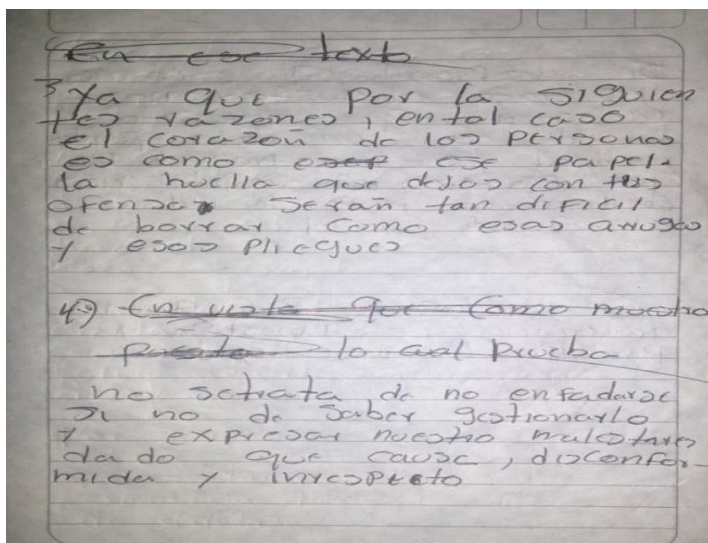 En ese texto
3 Ya que por la siguien
tes razones, en tal caso
el corazón de los personas
es como ese papel.
la huella que dejas con tus
ofensas serañ tan dificil
de borrar como esas arrugas
y esos pliegues
4) En vista que como muestra
lo cual prueba
no setrata de no enfadarse
si no de saber gestionarlo
y expresar nuestro malestares
dado que cause, disconfor-
mida y inrespeto